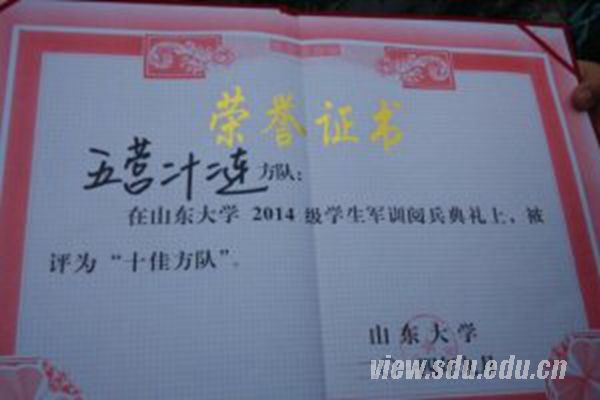 荣誉证书
五营二十二连方队：
在山东大学 2014 级学生军训阅兵典礼上，被
评为“十佳方队”。
山东大学
view.sdu.edu.cn